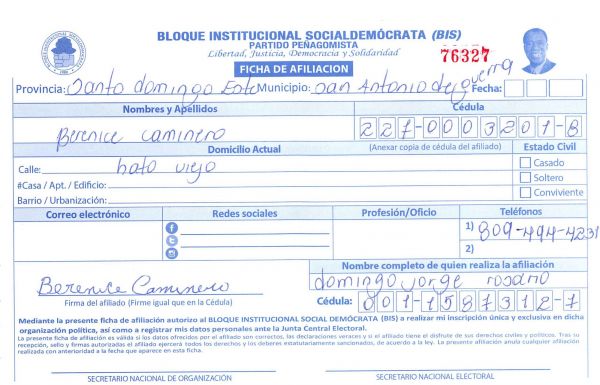 BLOQUE INSTITUCIONAL SOCIALDEMÓCRATA (BIS)
PARTIDO PEÑAGOMISTA
Libertad, Justicia, Democracia y Solidaridad
76327
FICHA DE AFILIACION
Provincia: Santo domingo Este Municipio: San Antonio de guerra Fecha:
Nombres y Apellidos Cédula
Berenice caminero 227-0003201-8
Domicilio Actual (Anexar copia de cédula del afiliado) Estado Civil
Calle: hato viejo Casado
#Casa / Apt. / Edificio: Soltero
Barrio / Urbanización: Conviviente
Correo electrónico Redes sociales Profesión/Oficio Teléfonos
1) 809-494-4231
2)
Nombre completo de quien realiza la afiliación
Berenice Caminero domingo jorge rosario
Firma del afiliado (Firme igual que en la Cédula) Cédula: 001-1587312-7
Mediante la presente ficha de afiliación autorizo al BLOQUE INSTITUCIONAL SOCIAL DEMÓCRATA (BIS) a realizar mi inscripción única y exclusiva en dicha
organización política, así como a registrar mis datos personales ante la Junta Central Electoral.
La presente ficha de afiliación es válida si los datos ofrecidos por el afiliado son correctos, las declaraciones veraces y si el afiliado tiene el disfrute de sus derechos civiles y políticos. Tras su
recepción, sello y firmas autorizadas el afiliado ejercerá todos los derechos y los deberes estatutariamente sancionados, de acuerdo a la ley. La presente afiliación anula cualquier afiliación
realizada con anterioridad a la fecha que aparece en esta ficha.
SECRETARIO NACIONAL DE ORGANIZACIÓN SECRETARIO NACIONAL ELECTORAL